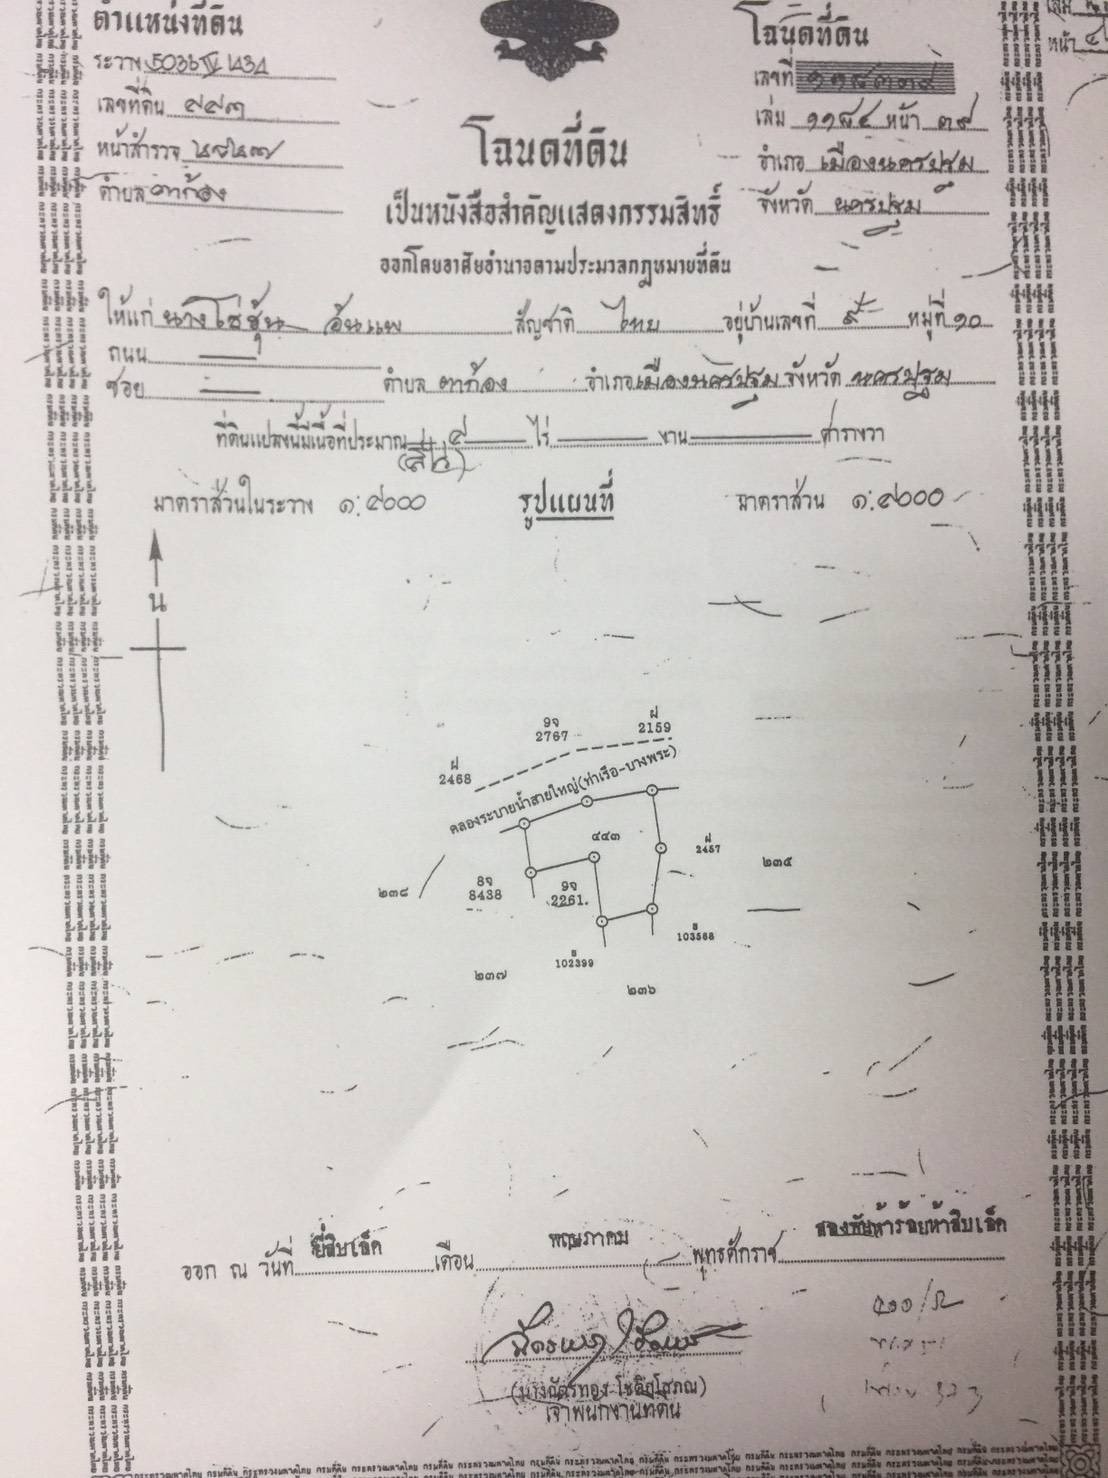 ตำแหน่งที่ดิน
ระวาง 5036 IV 1434
เลขที่ดิน ๔๔๓
หน้าสำรวจ
ตำบล ตาก้อง
โฉนดที่ดิน
เลขที่ ๑๑๘๓๓๙
เล่ม ๑๑๘๔ หน้า ๓๙
อำเภอ เมืองนครปฐม
จังหวัด นครปฐม
หน้า
โฉนดที่ดิน
เป็นหนังสือสำคัญแสดงกรรมสิทธิ์
ออกโดยอาศัยอำนาจตามประมวลกฎหมายที่ดิน
ให้แก่ นางโซ่ฮุ้น อ้นแพ สัญชาติ ไทย อยู่บ้านเลขที่ ๙ หมู่ที่ ๑๐
ถนน —
ซอย — ตำบล ตาก้อง อำเภอ เมืองนครปฐม จังหวัด นครปฐม
ที่ดินแปลงนี้มีเนื้อที่ประมาณ ๔ ไร่ — งาน — ตารางวา
(สี่ไร่)
มาตราส่วนในระวาง ๑:๔๐๐๐ รูปแผนที่ มาตราส่วน ๑:๔๐๐๐
น
ฝ
2468
9จ
2767
ฝ
2159
คลองระบายน้ำสายใหญ่(ท่าเรือ-บางพระ)
๔๔๓
ฝ
2457
๒๓๕
๒๓๘
8จ
8438
9จ
2261
103588
102399
๒๓๗
๒๓๖
ออก ณ วันที่ ยี่สิบเอ็ด เดือน พฤษภาคม พุทธศักราช สองพันห้าร้อยห้าสิบเอ็ด
(นางฉัตรทอง โชติกโสภณ)
เจ้าพนักงานที่ดิน
กรมที่ดิน กระทรวงมหาดไทย